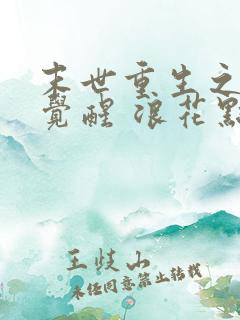 末世重生之
覺醒 浪花點
王歧山
未经同意禁止转载